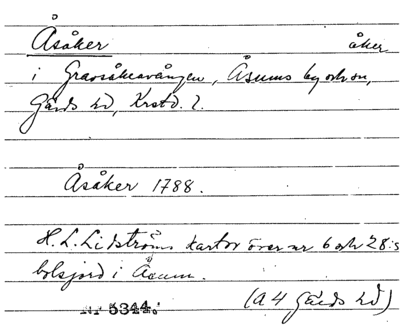 Åsåker åker
i Gravsåkravången, Åsums by och sn,
Gärds hd, Krstd. l.
Åsåker 1788.
H. L. Lidströms kartor över nr 6 och 28:s
bolsjord i Åsum.
Nr 5344. (A 4 Gärds hd)